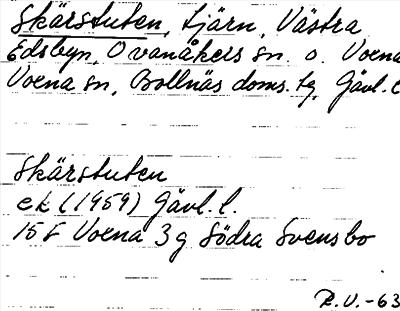 Skärstuten, tjärn, Västra
Edsbyn, Ovanåkers sn. o. Voxna
Voxna sn, Bollnäs doms. tg, Gävl. l
Skärstuten
ek (1959) Gävl. l.
15 F Voxna 3 g Södra Svensbo
R.V.-63